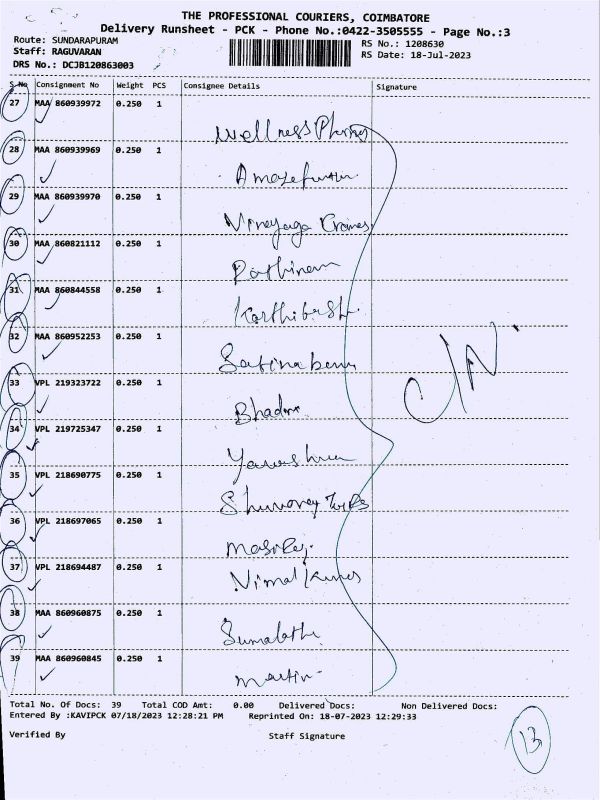 THE PROFESSIONAL COURIERS, COIMBATORE
Delivery Runsheet - PCK - Phone No.:0422-3505555 - Page No.:3
Route: SUNDARAPURAM
Staff: RAGUVARAN
DRS No.: DCJB120863003
RS No.: 1208630
RS Date: 18-Jul-2023
S No Consignment No Weight PCS Consignee Details Signature
27 MAA 860939972 0.250 1
Wellness
28 MAA 860939969 0.250 1
29 MAA 860939970 0.250 1
Vinayaga Cranes
30 MAA 860821112 0.250 1
Rathinam
31 MAA 860844558 0.250 1
32 MAA 860952253 0.250 1
33 VPL 219323722 0.250 1
34 VPL 219725347 0.250 1
35 VPL 218690775 0.250 1
36 VPL 218697065 0.250 1
37 VPL 218694487 0.250 1
Nimal Kumar
38 MAA 860960875 0.250 1
Sumalathi
39 MAA 860960845 0.250 1
Martin
C/N
Total No. Of Docs: 39 Total COD Amt: 0.00 Delivered Docs: Non Delivered Docs:
Entered By :KAVIPCK 07/18/2023 12:28:21 PM Reprinted On: 18-07-2023 12:29:33
Verified By Staff Signature
13